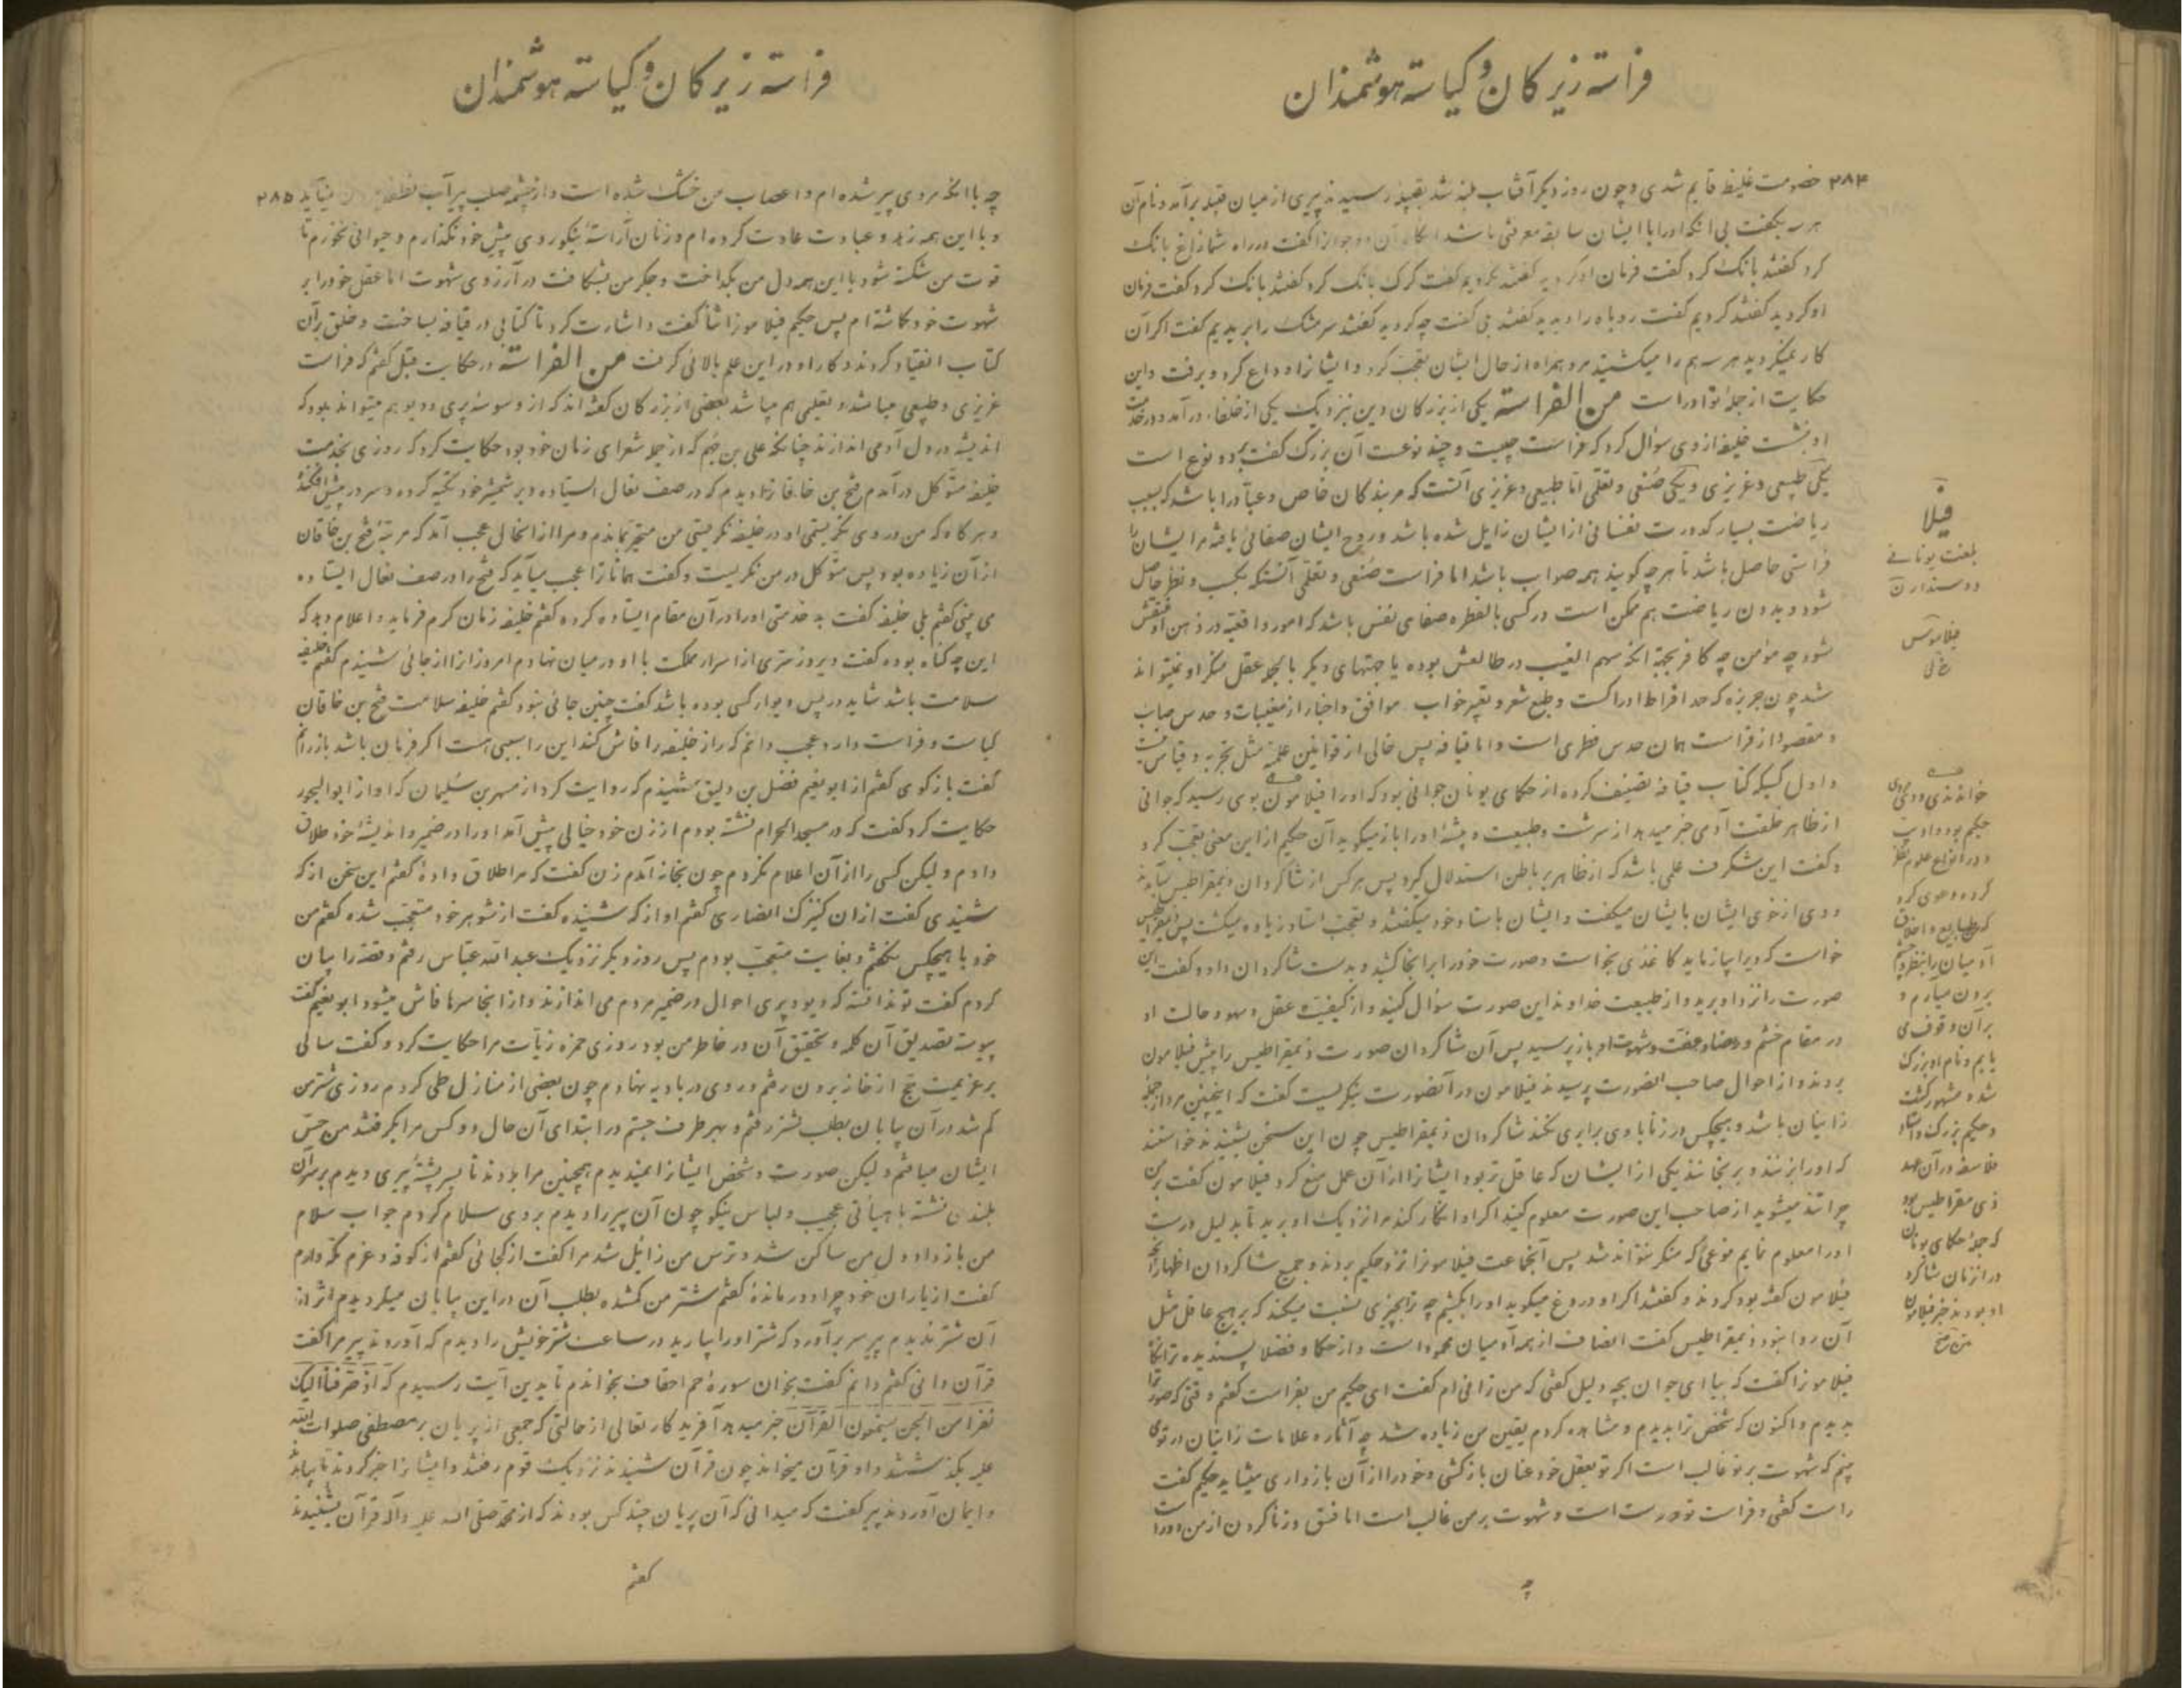 فراسته زیرکان و کیاسته هوشمندان
۲۸۴ خصومت غلیظ قایم شدی و چون روز دیگر آفتاب بلند شد بقبیله رسیدند پیری از میان قبیله برآمد و نام آن
هر سه بگفت بی آنکه او را با ایشان سابقه معرفتی باشد گفت در راه شما زاغ بانک
کرد گفتند بانک کرد گفت فرمان او کردید گفتند نکردیم گفت کرک بانک کرد گفتند بانک کرد گفت فرمان
او کردید گفتند کردیم گفت روباه را دیدید گفتند بی گفت چه کردید گفتند سر مشک را بریدیم گفت اکر آن
کار نمیکردید هر سه هم را میکشتید مرد همراه از حال ایشان تعجب کرد و ایشانرا وداع کرد و برفت و این
حکایت از جمله نوادر است من الفراسته یکی از بزرکان دین بنزدیک یکی از خلفا درآمد و در خدمت
او بنشست خلیفه از وی سؤال کرد که فراست چیست و چند نوعست آن بزرک گفت بر دو نوع است
یکی طبیعی و غریزی و یکی صنفی و تعلمی اما طبیعی و غریزی آنست که مر بندکان خاص و عباد را باشد که بسبب
ریاضت بسیار کدورت نفسانی از ایشان زایل شده باشد و روح ایشان صفائی یافته مر ایشان را
فراستی حاصل باشد تا هر چه گویند همه صواب باشد اما فراست صنفی و تعلمی آنستکه بکسب و نظر حاصل
شود و بدون ریاضت هم ممکن است در کسی بالفطره صفای نفس باشد که امور واقعیه در ذهن او منتقش
شود چه مؤمن چه کافر بجهة آنکه سهم الغیب در طالعش بوده یا جهتهای دیگر بالجمله عقل منکر او نمیتواند
شد چون جربزه که حد افراط ادراکست و طبع شعر و تعبیر خواب موافق و اخبار از مغیبات و حدس صایب
و مقصود از فراست همان حدس فطری است و اما قیافه پس خالی از قوانین علمیه مثل تجربه و قیاس نیست
و اول کسیکه کتاب قیافه تصنیف کرده از حکمای یونان جوانی بود که او را فیلامون بوی رسید که جوانی
از ظاهر خلقت آدمی خبر میدهد از سرشت و طبیعت و پیشه او را باز میگوید آن حکیم از این معنی تعجب کرد
و گفت این شگرف علمی باشد که از ظاهر بر باطن استدلال گیرد پس هر کس از شاگردان ذیمقراطیس بیامدند
و وی از خوی ایشان بایشان میگفت و ایشان باستاد خود میگفتند و تعجب استاد زیاده میگشت پس ذیمقراطیس
خواست که ویرا بیازماید کاغذی بخواست و صورت خود را برانجا کشید و بدست شاگردان داد و گفت این
صورت را نزد او برید و از طبیعت خداوند این صورت سؤال کنید و از کیفیت عقل و سهو و حالت او
در مقام خشم و رضا و عفت و شهوت او بازپرسید پس آن شاگردان صورت ذیمقراطیس را پیش فیلامون
بردند و از احوال صاحب آنصورت پرسیدند فیلامون در آنصورت بنگریست گفت که اینچنین مرد از جمله
زانیان باشد و هیچکس در زنا با وی برابری نکند شاگردان ذیمقراطیس چون این سخن بشنیدند خواستند
که او را بزنند و برنجانند یکی از ایشان که عاقل تر بود ایشانرا از آن عمل منع کرد فیلامون گفت بر من
چرا تند میشوید از صاحب این صورت معلوم کنید اکر او انکار کند مرا نزدیک او برید تا بدلیل درست
او را معلوم نمایم نوعی که منکر نتواند شد پس آنجماعت فیلامونرا نزد حکیم بردند و جمیع شاگردان اظهار آنچه
فیلامون گفته بود کردند و گفتند اکر او دروغ میگوید او را بکشیم چه ترا بچیزی نسبت میکند که بر هیچ عاقل مثل
آن روا نبود ذیمقراطیس گفت انصاف از همه آدمیان محمود است و از حکما و فضلا پسندیده تر آنگاه
فیلامونرا گفت که بیا ای جوان بچه دلیل گفتی که من زانی ام گفت ای حکیم من بفراست گفتم وقتی که صورت ترا
بدیدم و اکنون که شخص ترا بدیدم و مشاهده کردم یقین من زیاده شد چه آثار و علامات زانیان در توی
بینم که شهوت بر تو غالب است اکر تو بعقل خود عنان باز کشی و خود را از آن بازداری میشاید حکیم گفت
راست گفتی و فراست تو درست است و شهوت بر من غالب است اما فسق و زنا کردن از من دور است
چه
فیلا
بلغت یونانی
دوستدارن
فیلاموس
خ ل
خواندندی و وی مردی
حکیم بود و ادیب
و در انواع علوم نظر
کرده دعوی کرد
که طبایع و اخلاق
آدمیان را بنظر چشم
برون میآرم و
بر آن وقوف می
یابم و نام او بزرک
شده مشهور کشت
و حکیم بزرک و استاد
فلاسفه در آن عهد
ذی مقراطیس بود
که جمله حکمای یونان
در آنزمان شاگرد
او بودند خبر فیلامون
فراسته زیرکان و کیاسته هوشمندان
چه با آنکه مردی پیر شده ام و اعصاب من خشک شده است و از چشمه صلب پر آب نمیآید ۲۸۵
و با این همه زهد و عبادت عادت کرده ام و زنان آراسته نیکوروی پیش خود نگذارم و حیوانی نخورم تا
قوت من شکسته شود با این همه دل من بگداخت و جکر من بشکافت در آرزوی شهوت اما عقل خود را بر
شهوت خود گماشته ام پس حکیم فیلامونرا ثنا گفت و اشارت کرد تا کتابی در قیافه بساخت و خلق بر آن
کتاب انقیاد کردند و کار او در این علم بالائی گرفت من الفراسته در حکایت قبل گفتم که فراست
غریزی و طبیعی میباشد و تعلمی هم میباشد بعضی از بزرکان گفته اند که از وسوسه پری و دیو هم میتواند بود که
اندیشه در دل آدمی اندازند چنانکه علی بن جهم که از جمله شعرای زمان خود بود حکایت کرد که روزی بخدمت
خلیفه متوکل درآمدم فتح بن خاقانرا دیدم که در صف نعال ایستاده و بر شمشیر خود تکیه کرده و سر در پیش افکنده
و هر گاه که من در وی نگریستمی او در خلیفه نگریستی من متحیر بماندم و مرا از آنحال عجب آمد که مرتبه فتح بن خاقان
از آن زیاده بود پس متوکل در من نگریست و گفت همانا ترا عجب میآید که فتح را در صف نعال ایستاده
می بینی گفتم بلی خلیفه گفت بد خدمتی او را در آن مقام ایستاده کرده گفتم خلیفه زمان کرم فرماید و اعلام دهد که
این چه گناه بوده گفت دیروز سری از اسرار مملکت با او در میان نهادم امروز آنرا از جائی شنیدم گفتم خلیفه
سلامت باشد شاید در پس دیوار کسی بوده باشد گفت چنین جائی نبود گفتم خلیفه سلامت فتح بن خاقان
کیاست و فراست دارد و عجب دانم که راز خلیفه را فاش کند این را سببی هست اکر فرمان باشد باز رانم
گفت بازگوی گفتم از ابو نعیم فضل بن دلیق شنیدم که روایت کرد از مسهر بن سلیمان که او از ابوالجور
حکایت کرد گفت که در مسجد الحرام نشسته بودم از زن خود خیالی پیش آمد او را در ضمیر و اندیشه خود طلاق
دادم و لیکن کسی را از آن اعلام نکردم چون بخانه آمدم زن گفت که مرا طلاق دادۀ گفتم این سخن از که
شنیدی گفت از آن کنیزک انصاری گفتم او از که شنیده گفت از شوهر خود متعجب شده گفتم من
خود با هیچکس نگفتم و بغایت متعجب بودم پس روز دیگر نزدیک عبدالله عباس رفتم و قصه را بیان
کردم گفت تو ندانسته که دیو و پری احوال در ضمیر مردم می اندازند و از آنجا سرها فاش میشود ابو نعیم گفت
پیوسته تصدیق آن کلمه و تحقیق آن در خاطر من بود روزی حمزه زیات مرا حکایت کرد و گفت سالی
بر عزیمت حج از خانه برون رفتم و روی در بادیه نهادم چون بعضی از منازل طی کردم روزی شتر من
گم شد در آن بیابان بطلب شتر رفتم و بهر طرف جستم و در ابتدای آن حال دو کس مرا بگرفتند من حس
ایشان میافتم و لیکن صورت و شخص ایشانرا نمیدیدم همچنین مرا ببردند تا بسر پشته پیری دیدم بر سر آن
بلندی نشسته با هیأتی عجیب و لباس نیکو چون آن پیر را دیدم بر وی سلام کردم جواب سلام
من باز داد دل من ساکن شد و ترس من زائل شد مرا گفت از کجائی گفتم از کوفه و عزم مکه دارم
گفت از یاران خود چرا دور ماندۀ گفتم شتر من گمشده بطلب آن در این بیابان میگردیدم اثر از
آن شتر ندیدم پیر سر برآورد که شتر او را بیارید در ساعت شتر خویش را دیدم که آوردند پیر مرا گفت
قرآن دانی گفتم دانم گفت بخوان سورۀ حم احقاف بخواندم تا بدین آیت رسیدم که اذ صرفنا الیک
نفرا من الجن یستمعون القرآن خبر میدهد آفریدگار تعالی از حالتی که جمعی از پریان بر مصطفی صلوات الله
علیه بگذشتند و او قرآن میخواند چون قرآن شنیدند نزدیک قوم رفتند و ایشانرا خبر کردند تا بیامدند
و ایمان آوردند پیر گفت که میدانی که آن پریان چند کس بودند که از محمد صلی الله علیه و آله قرآن بشنیدند
گفتم